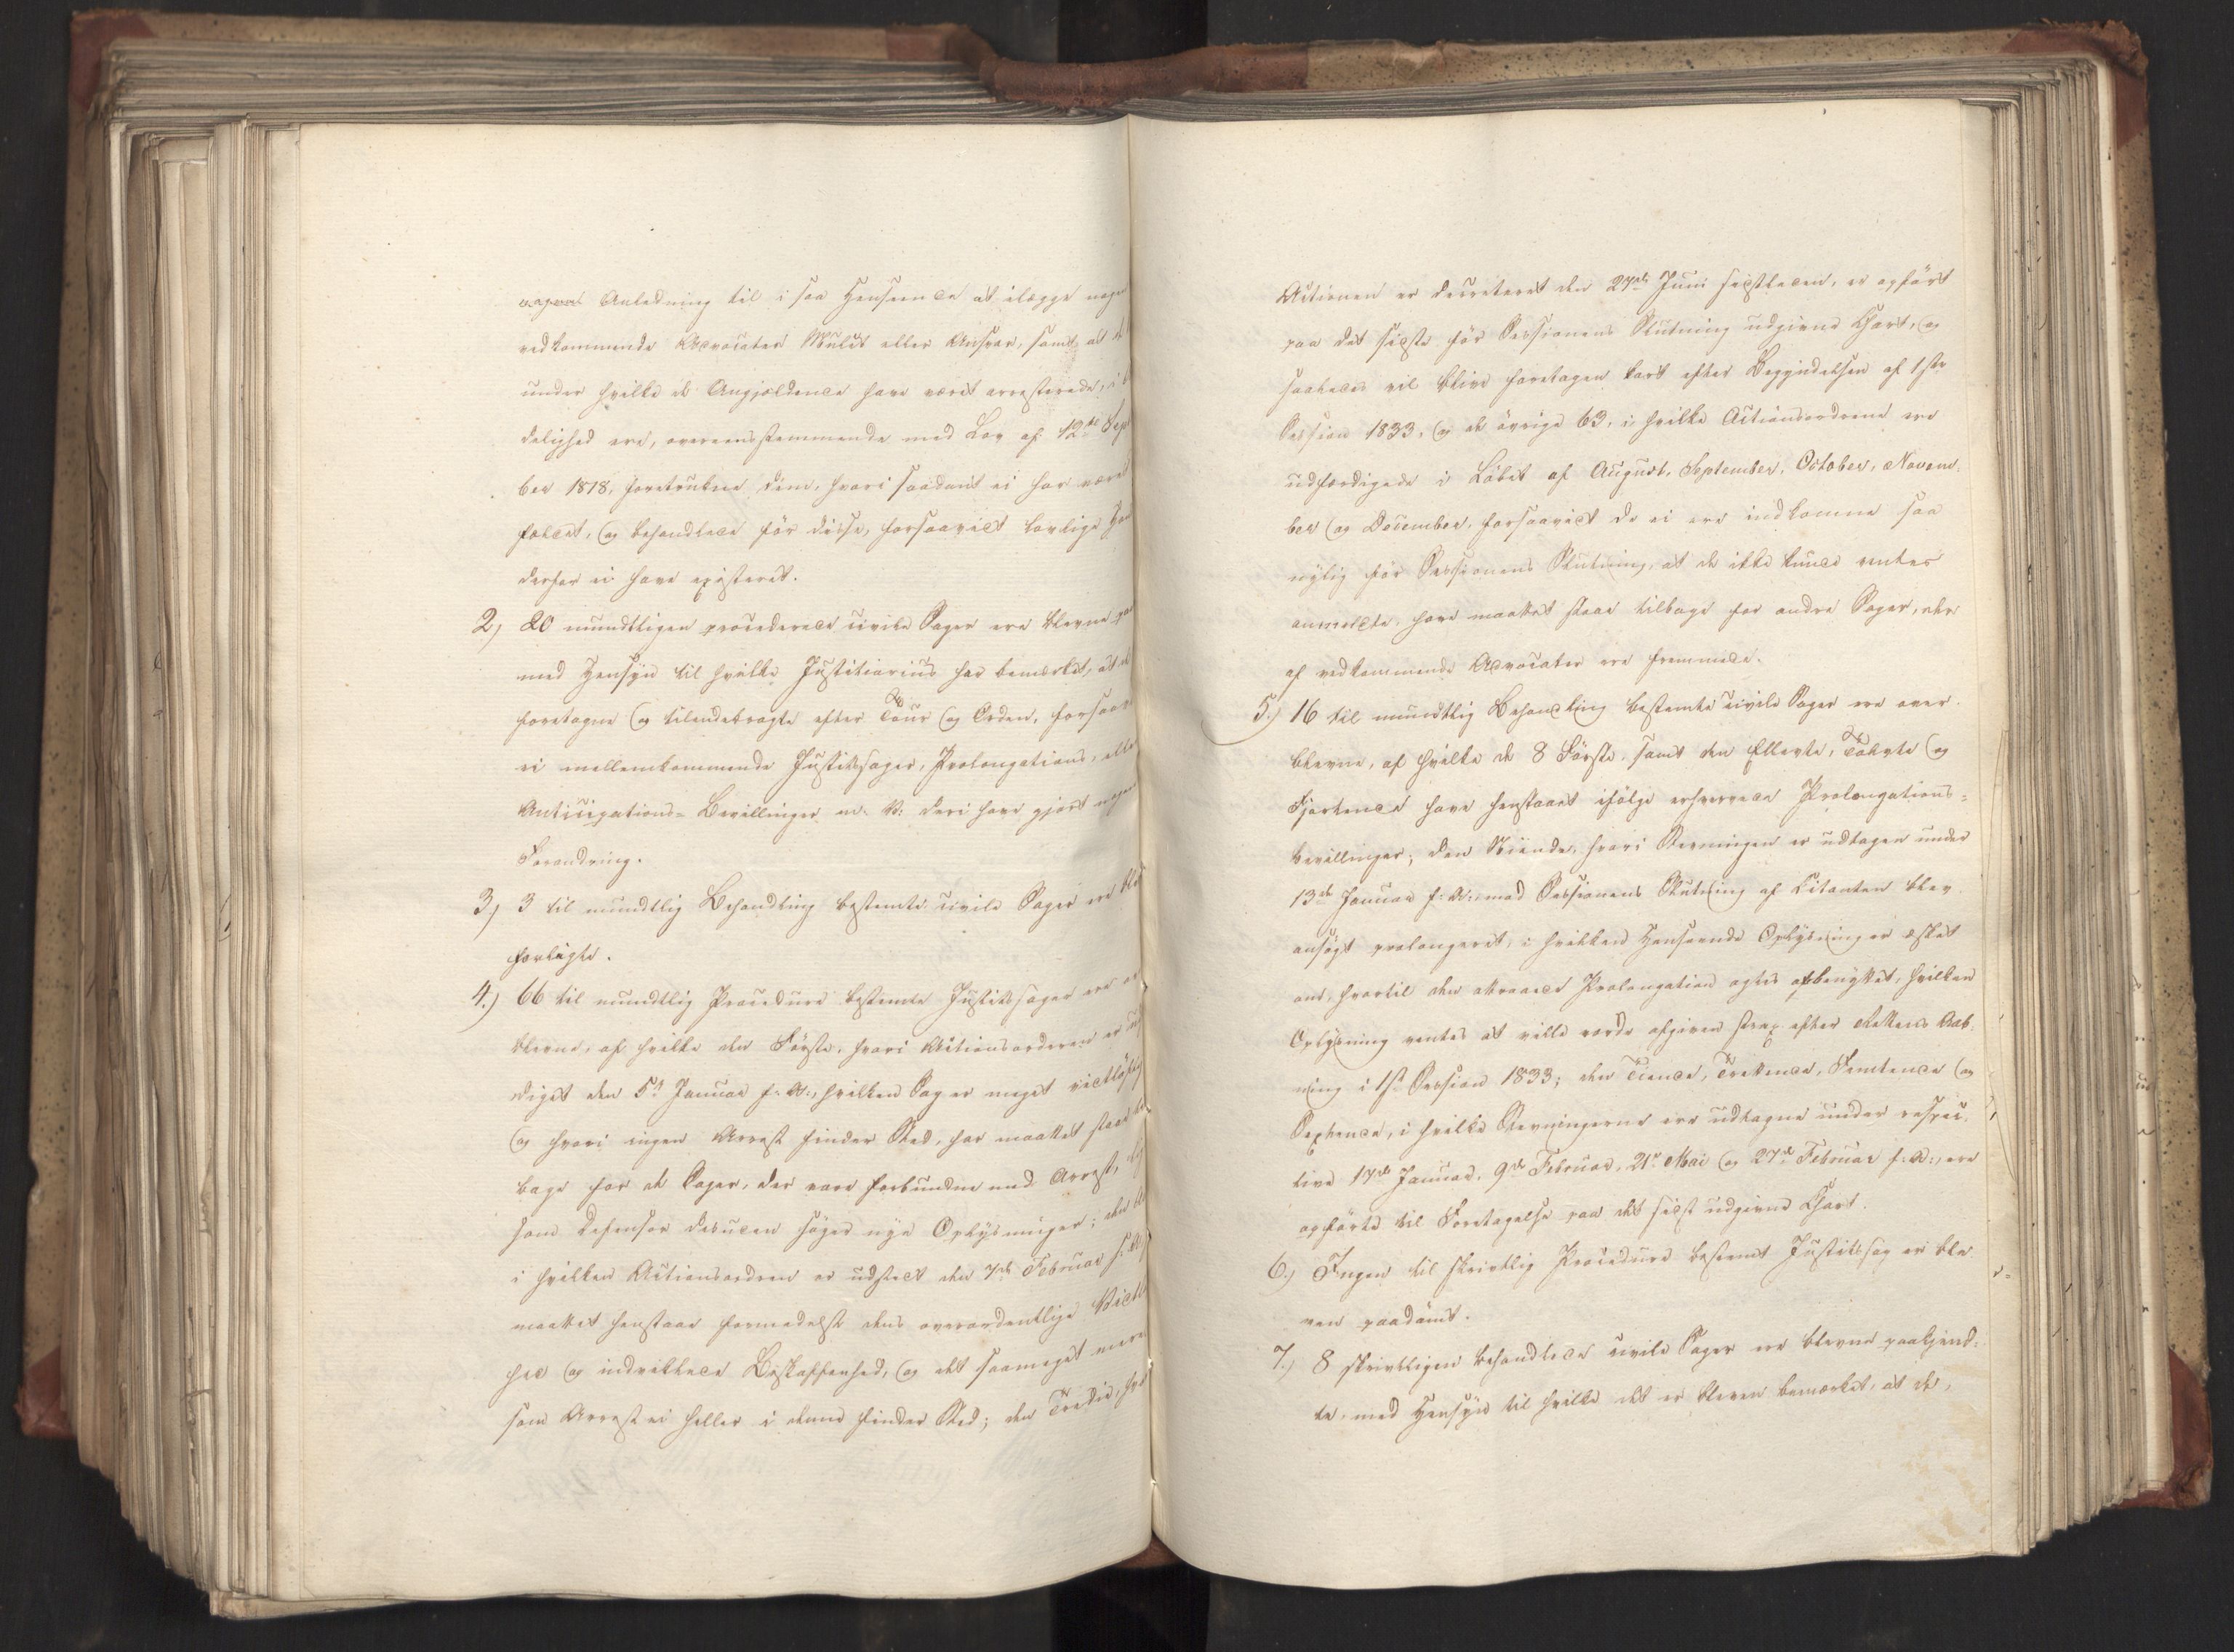 nogen Anledning til i saa Henseende at ilægge nogen
vedkommende Advocater Mulct eller Ansvar, samt at de
under hvilke de Angjeldende have været arresterede, i
delighed ere, overeensstemmende med Lov af 12te Sep
ber 1818, foretrukne dem, hvori saadant ei har været
fældet, og behandlede før disse, forsaavidt lovlige
derfor ei have existeret.
2) 20 mundtligen procederede civile Sager ere blevne
med Hensyn til hvilke Justitiarius har bemærket, at de
foretagne og tilendebragte efter Tour og Orden, forsaa
ei mellemkommende Justitssager, Prolongations, eller
Anticipations-Bevillinger m: V: deri have gjort nogen
Forandring.
3) 3 til mundtlig Behandling bestemte civile Sager ere
forligte.
4.) 66 til mundtlig Procedure bestemte Justitssager ere
blevne, af hvilke den Første, hvori Actionsorderen er
diget den 5te Januar f: A:, hvilken Sag er meget vidtløftig
og hvori ingen Arrest finder Sted, har maattet staae
bage for de Sager, der vare forbundne med Arrest,
som Defensor desuden søger nye Oplysninger; den
i hvilken Actionsordren er udstedt den 7de Februar f: A:
maattet henstaae formedelst dens overordentlige Vidt
hed og indviklede Beskaffenhed, og det saameget mere
som Arrest ei heller i denne finder Sted; den Tredie,
Actionen er decreteret den 27de Juni sidstleden, er opført
paa det sidste før Sessionens Slutning udgivne Chart, og
saaledes vil blive foretagen kort efter Begyndelsen af 1ste
Session 1833, og de øvrige 63, i hvilke Actionsordrene ere
udfærdigede i Løbet af August, September, October, Novem-
ber og December, forsaavidt de ei ere indkomne saa
nylig før Sessionens Slutning, at de ikke kunde ventes
anmeldte, have maattet staae tilbage for andre Sager, der
af vedkommende Advocater ere fremmede.
5.) 16 til mundtlig Behandling bestemte civile Sager ere over-
blevne, af hvilke de 8 Første, samt den Ellevte, Tolvte og
Fjortende have henstaaet ifølge erhvervede Prolongations-
bevillinger; den Niende, hvori Stevningen er udtagen under
13de Januar f: A:, med Sessionens Slutning af Citanten blev
ansøgt prolongeret, i hvilken Henseende Oplysning er æsket
om, hvortil den attraaede Prolongation agtes afbenyttet, hvilken
Oplysning ventes at ville vorde afgiven strax efter Rettens Aab-
ning i 1ste Session 1833; den Tiende, Trettende, Femtende og
Sextende, i hvilke Stevningerne ere udtagne under respec-
tive 17de Januar, 9de Februar, 21de Mai og 27de Februar f: A:, ere
opførte til Foretagelse paa det sidst udgivne Chart.
6.) Ingen til skrivtlig Procedure bestemt Justitssag er ble-
ven paadømt.
7.) 8 skrivtligen behandlede civile Sager ere blevne paakjend-
te, med Hensyn til hvilke det er bleven bemærket, at de,